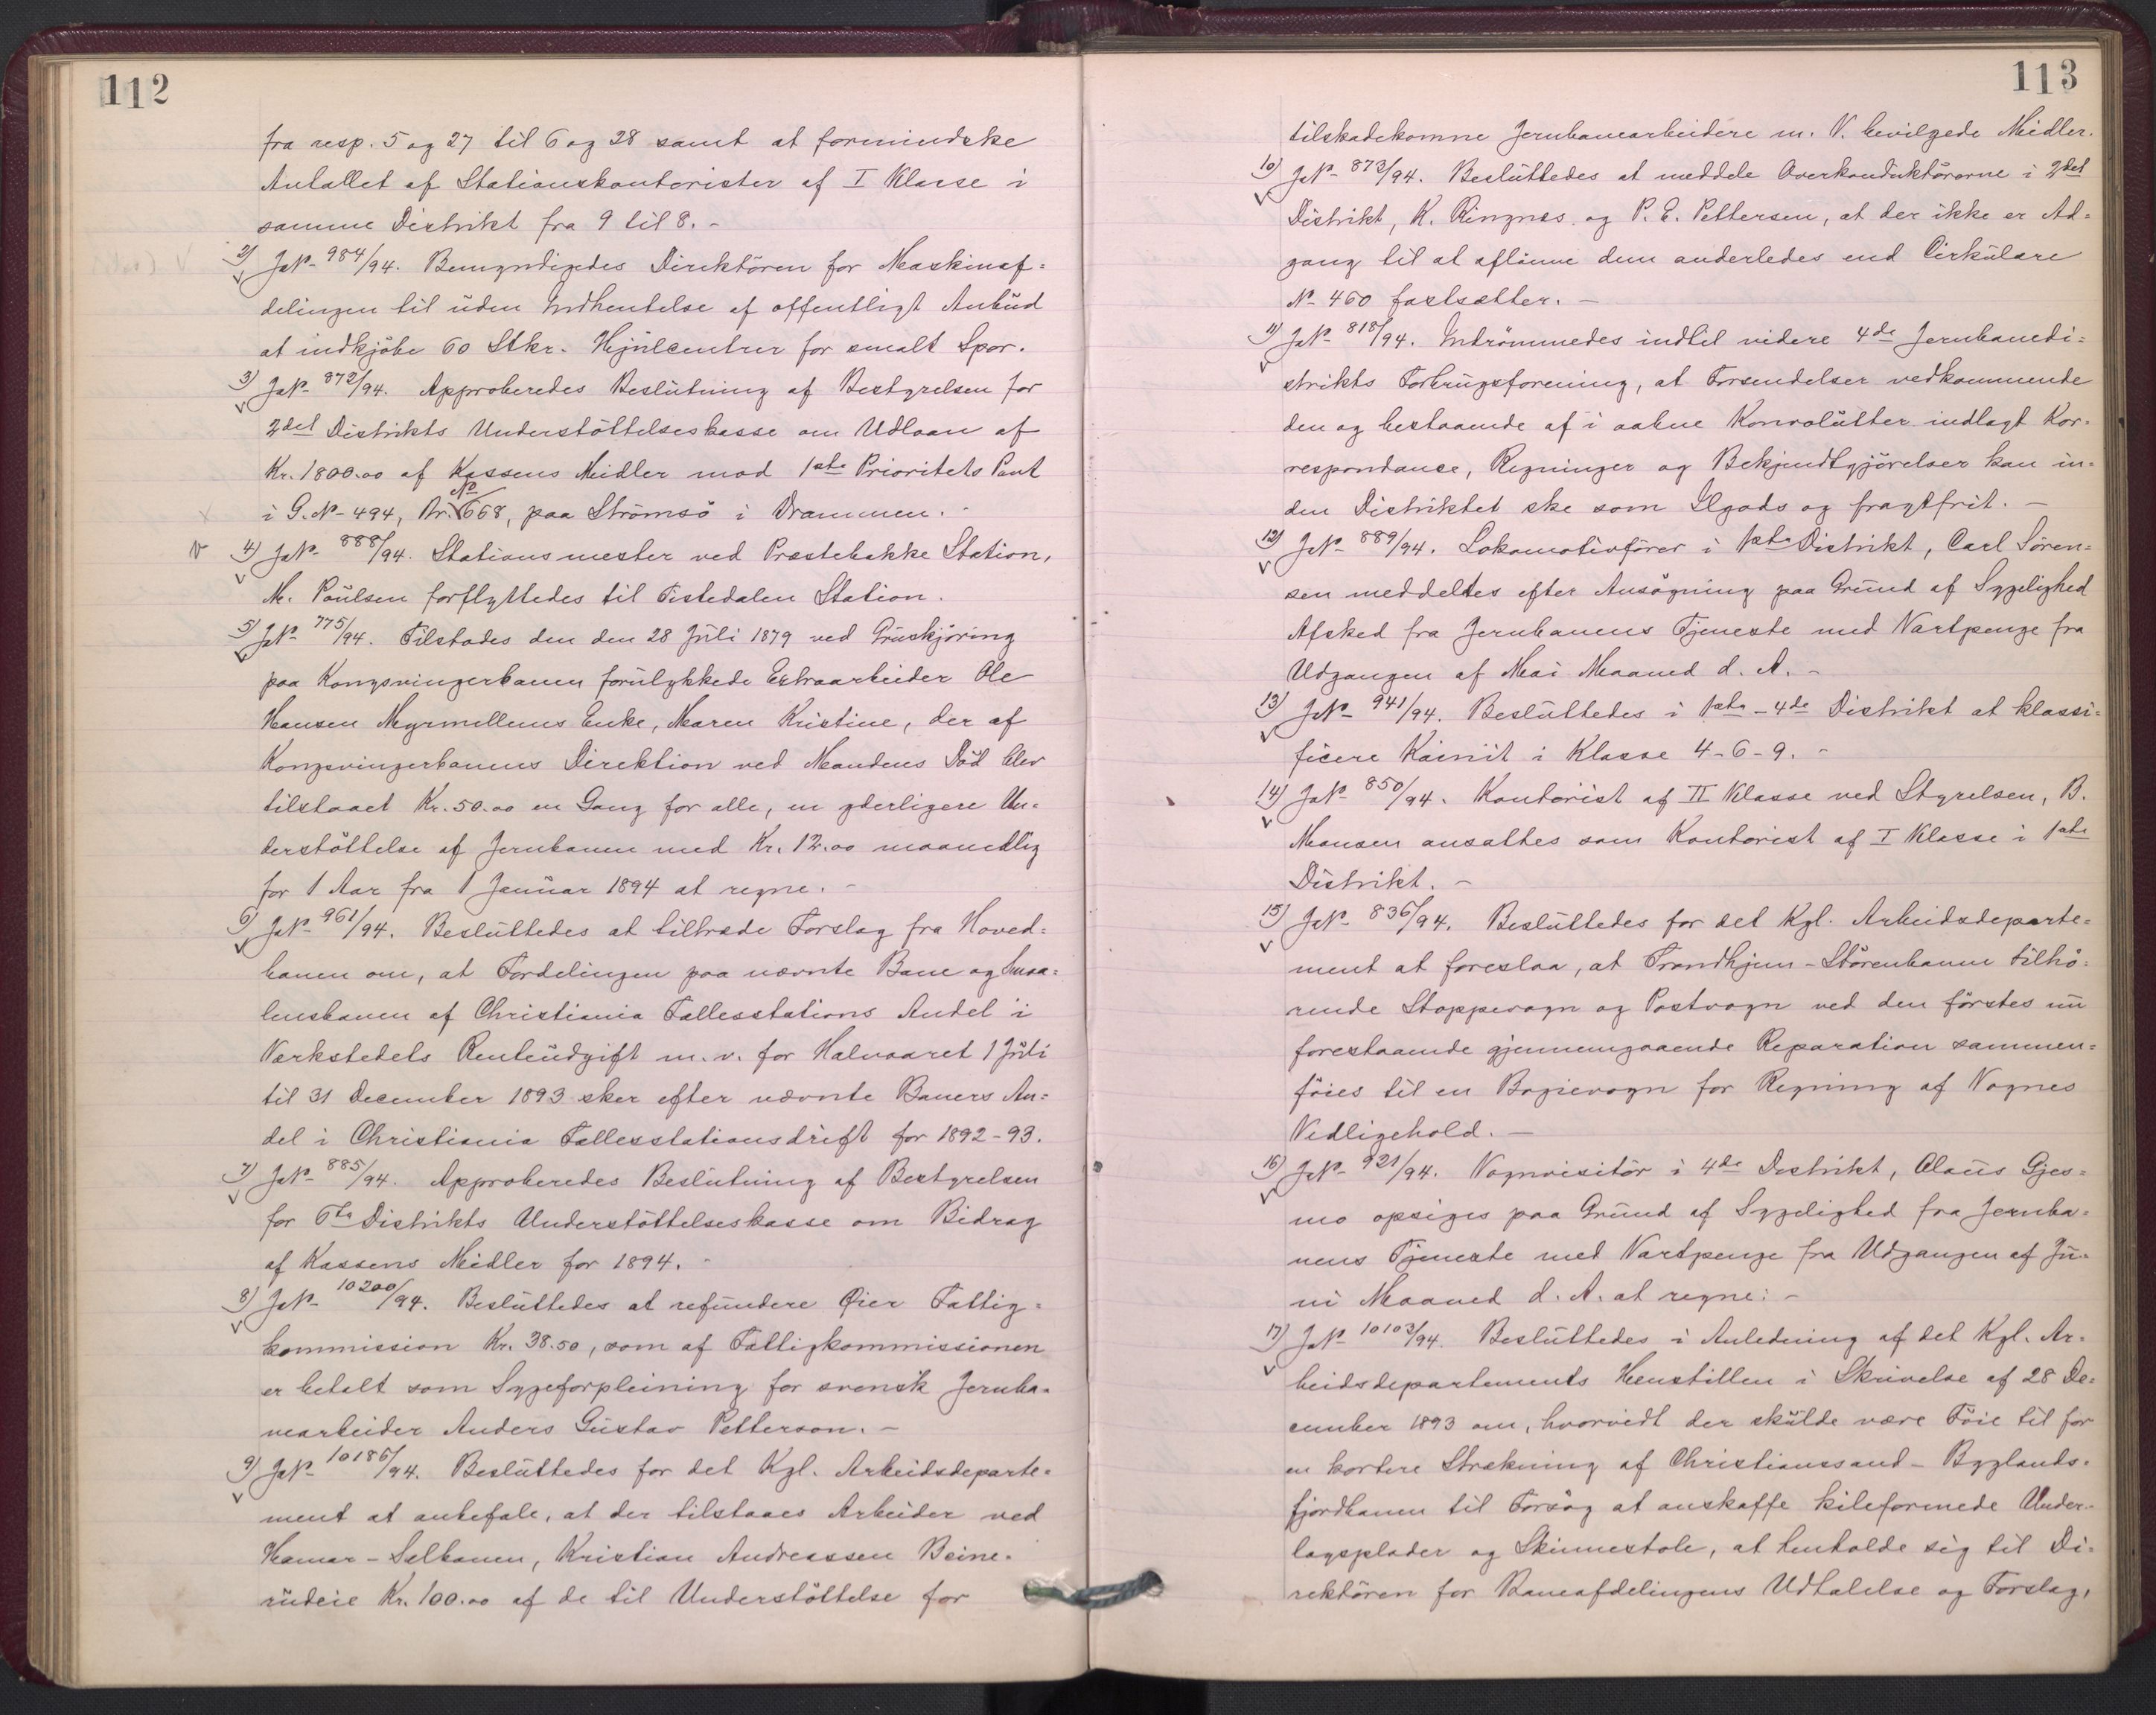 112
fra resp. 5 og 27 til 6 og 28 samt at formindske
Antallet af Stationskontorister af I Klasse i
samme Distrikt fra 9 til 8. -
2) JN° 984/94. Bemyndigedes Direktören for Maskinaf=
delingen til uden Indhentelse af offentligt Anbud
at indkjöbe 60 Stkr. Hjulcentrer for smalt Spor.
3) JN° 872/94. Approberedes Beslutning af Bestyrelsen for
2det Distrikts Understöttelseskasse om Udlaan af
Kr. 1800.00 af Kassens Midler mod 1ste Prioritets Pant
i G. N° 494, Br. N° 668, paa Strömsö i Drammen. -
4) JN° 888/94. Stationsmester ved Præstebakke Station,
M. Poulsen forflyttedes til Tistedalen Station.
5) JN° 775/94. Tilstodes den den 28 Juli 1879 ved Gruskjöring
paa Kongsvingerbanen forulykkede Extraarbeider Ole
Hansen Myrmellems Enke, Maren Kristine, der af
Kongsvingerbanens Direktion ved Mandens Död blev
tilstaaet Kr. 50.00 en Gang for alle, en yderligere Un=
derstöttelse af Jernbanen med Kr. 12.00 maanedlig
for 1 Aar fra 1 Januar 1894 at regne. -
6) JN° 961/94. Besluttedes at tiltræde Forslag fra Hoved=
banen om, at Fordelingen paa nævnte Bane og Smaa=
lensbanen af Christiania Fællesstations Andel i
Værkstedets Renteudgift m. v. for Halvaaret 1 Juli
til 31 December 1893 sker efter nævnte Baners An=
del i Christiania Fællesstationsdrift for 1892-93.
7) JN° 885/94. Approberedes Beslutning af Bestyrelsen
for 6te Distrikts Understöttelseskasse om Bidrag
af Kassens Midler for 1894. -
8) JN° 10200/94. Besluttedes at refundere Øier Fattig=
kommission Kr. 38.50, som af Fattigkommissionen
er betalt som Sygeforpleining for svensk Jernba=
nearbeider Anders Gustav Petterson. -
9) JN° 10186/94. Besluttedes for det Kgl. Arbeidsdeparte=
ment at anbefale, at der tilstaaes Arbeider ved
Hamar - Selbanen, Kristian Andreassen Beine=
rudeie Kr. 100.00 af de til Understöttelse for
113
tilskadekomne Jernbanearbeidere m. V. bevilgede Midler.
10) JN° 873/94. Besluttedes at meddele Overkonduktörerne i 2det
Distrikt, K. Ringnes og P. E. Pettersen, at der ikke er Ad=
gang til at aflönne dem anderledes end Cirkulære
N° 460 fastsætter. -
11) JN° 818/94. Indrömmedes indtil videre 4de Jernbanedi=
strikts Forbrugsforening, at Forsendelser vedkommende
den og bestaaende af i aabne Konvolutter indlagt Kor=
respondance, Regninger og Bekjendtgjörelser kan in=
den Distriktet ske som Ilgods og fragtfrit. -
12) JN° 889/94. Lokomotivförer i 1ste Distrikt, Carl Sören=
sen meddeltes efter Ansögning paa Grund af Sygelighed
Afsked fra Jernbanens Tjeneste med Vartpenge fra
Udgangen af Mai Maaned d. A. -
13) JN° 941/94. Besluttedes i 1ste - 4de Distrikt at klassi=
ficere Kainit i Klasse 4-6-9. -
14) JN° 850/94. Kontorist af II Klasse ved Styrelsen, B.
Monsen ansattes som Kontorist af I Klasse i 1ste
Distrikt. -
15) JN° 836/94. Besluttedes for det Kgl. Arbeidsdeparte=
ment at foreslaa, at Trondhjem - Störenbanen tilhö=
rende Stoppevogn og Postvogn ved den förstes nu
forestaaende gjennemgaaende Reparation sammen=
föies til en Bogievogn for Regning af Vognes
Vedligehold. -
16) JN° 921/94. Vognvisitör i 4de Distrikt, Olaus Gjes=
mo opsiges paa Grund af Sygelighed fra Jernba=
nens Tjeneste med Vartpenge fra Udgangen af Ju=
ni Maaned d. A. at regne: -
17) JN° 10103/94. Besluttedes i Anledning af det Kgl. Ar=
beidsdepartements Henstillen i Skrivelse af 28 De=
cember 1893 om, hvorvidt der skulde være Föie til for
en kortere Strækning af Christianssand - Byglands=
fjordbanen til Forsög at anskaffe kileformede Under=
lagsplader og Skinnestole, at henholde sig til Di=
rektören for Baneafdelingens Udtalelse og Forslag,